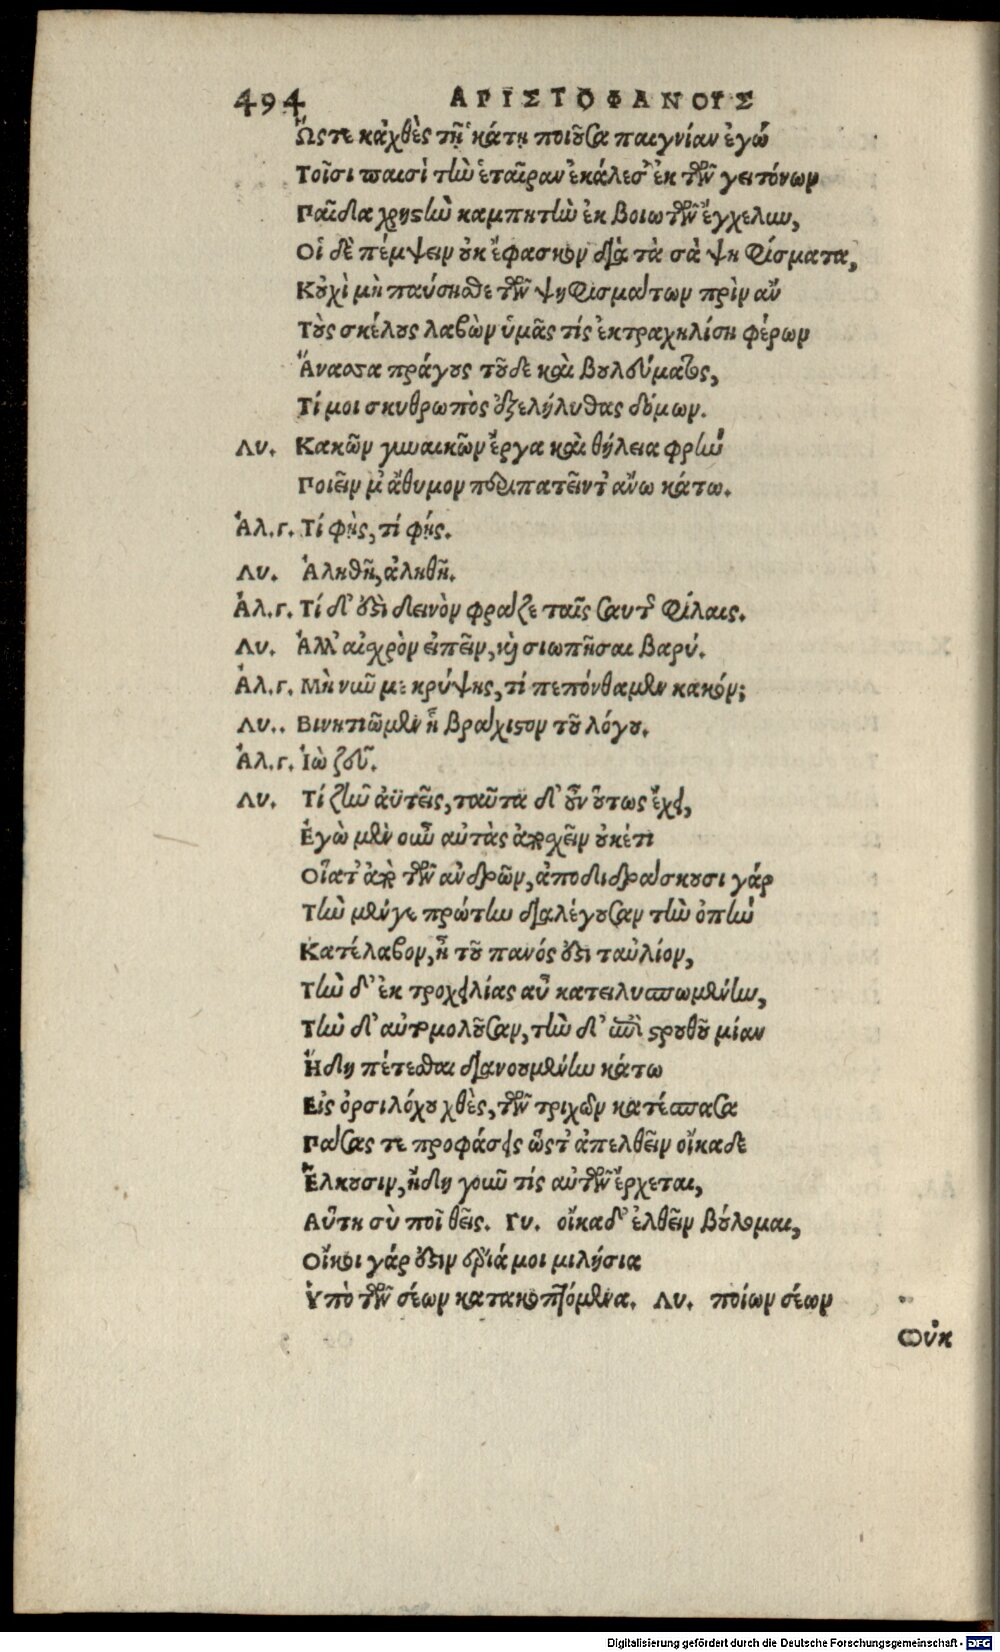 494 ΑΡΙΣΤΟΦΑΝΟΥΣ
Ὥςτε κἀχθὲς τῇ ἑκάτῃ ποιοῦσα παιγνίαν ἐγώ
Τοῖσι παισὶ τὴν ἑταῖραν ἐκάλεσ' ἐκ τῶν γειτόνων
Παῖδα χρηστὴν καμπητὴν ἐκ βοιωτῶν ἔγχελυν,
Οἱ δὲ πέμψειν οὐκ ἔφασκον διὰ τὰ σὰ ψηφίσματα,
Κοὐχὶ μὴ παύσησθε τῶν ψηφισμάτων πρὶν ἂν
Τοὺς σκέλους λαβὼν ὑμᾶς τίς ἐκτραχηλίση φέρων
Ἄνασσα πράγους τοῦδε καὶ βουλεύματος,
Τί μοι σκυθρωπὸς ἐξελήλυθας δόμων.
Λυ. Κακῶν γυναικῶν ἔργα καὶ θήλεια φρὴν
Ποιεῖν μ' ἄθυμον περιπατεῖν τ' ἄνω κάτω.
Ἀλ.γ. Τί φὴς, τί φής.
Λυ. Ἀληθῆ, ἀληθῆ.
Ἀλ.γ. Τί δ' ἐστὶ δεινὸν φράζε ταῖς σαυτῆς φίλαις.
Λυ. Ἀλλ' αἰσχρὸν εἰπεῖν, καὶ σιωπῆσαι βαρύ.
Ἀλ.γ. Μὴ νῦν με κρύψης, τί πεπόνθαμεν κακόν;
Λυ.. Βινητιῶμεν ᾗ βράχιστον τοῦ λόγου.
Ἀλ.γ. Ἰὼ ζεῦ.
Λυ. Τί ζῆν ἀϋτεῖς, ταῦτα δ' οὖν οὕτως ἔχει,
Ἐγὼ μὲν οὖν αὐτὰς ἀποσχεῖν οὐκέτι
Οἵα τ' ἀπὸ τῶν ἀνδρῶν, ἀποδιδράσκουσι γάρ
Τὴν μέν γε πρώτην διαλέγουσαν τὴν ὀπὴν
Κατέλαβον, ᾗ τοῦ πανός ἐστι ταὐλίον,
Τὴν δ' ἐκ τροχειλίας αὖ κατειλυσπωμένην,
Τὴν δ' αὐτομολοῦσαν, τὴν δ' ἐπὶ στρουθοῦ μίαν
Ἤδη πέτεσθαι διανουμένην κάτω
Εἰς ὀρσιλόχου χθὲς, τῶν τριχῶν κατέσπασα
Πάσας τε προφάσεις ὥστ' ἀπελθεῖν οἴκαδε
Ἕλκουσιν, ἤδη γοῦν τίς αὐτῶν ἔρχεται,
Αὕτη σὺ ποῖ θεῖς. Γυ. οἴκαδ' ἐλθεῖν βούλομαι,
Οἴκοι γάρ ἐστιν ἔριά μοι μιλήσια
Ὑπὸ τῶν σέων κατακοπτόμενα. Λυ. ποίων σέων
Οὐκ
Digitalisierung gefördert durch die Deutsche Forschungsgemeinschaft - DFG